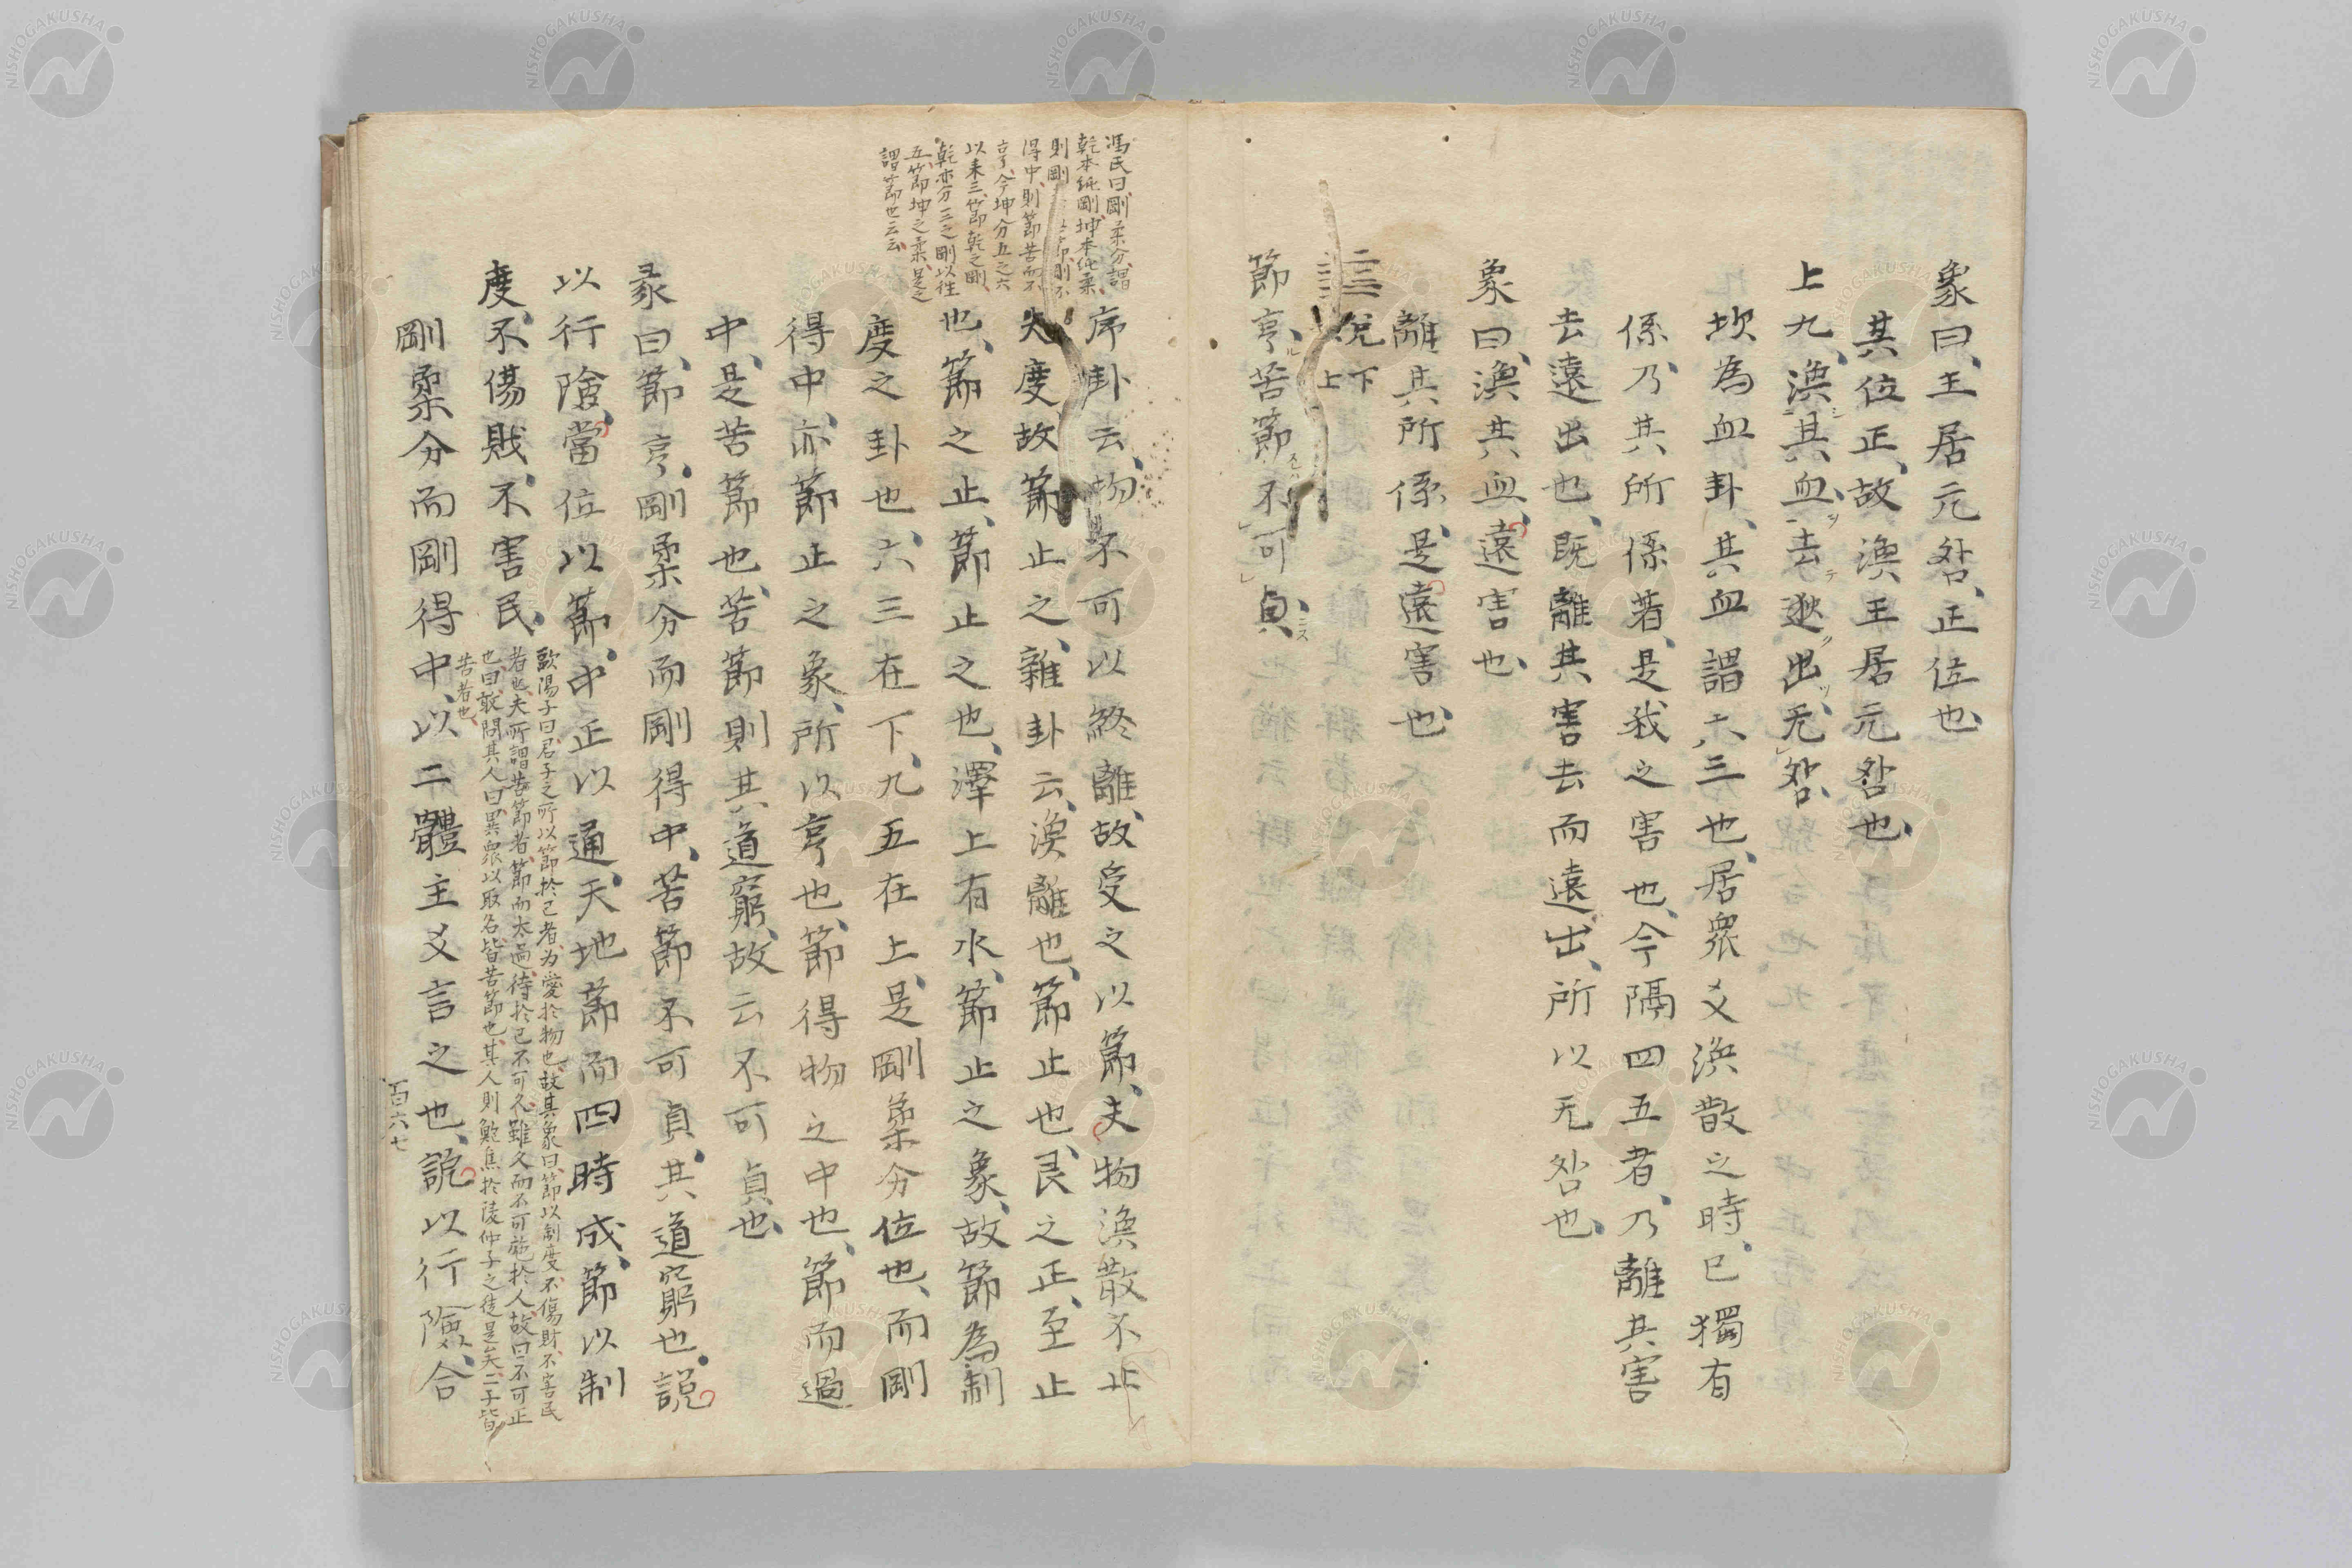 象曰、王居元咎、正位也、
其位正、故渙王居元咎也、
上九、渙其血、去逖出、无咎、
坎為血卦、其血謂六三也、居衆爻渙散之時、已獨有
係乃其所係者、是我之害也、今隔四五者、乃離其害
去遠出也、既離其害去而遠出、所以无咎也、
象曰、渙其血、遠害也、
離其所係、是遠害也、
兌下
坎上
節亨、苦節不可貞、
馮氏曰、剛柔分、謂
乾本純剛、坤本純柔、
得中、則節苦而不
亨、今坤分五之六
以来三、節乾之剛、
乾亦分三之剛以往
五、節坤之柔、是之
謂節也云云、
序卦云、物不可以終離、故受之以節、夫物渙散不止
失度故節止之、雜卦云、渙離也、節止也、艮之正、至止
也、節之止、節止之也、澤上有水、節止之象、故節為制
度之卦也、六三在下、九五在上、是剛柔分位也、而剛
得中、亦節止之象、所以亨也、節得物之中也、節而過
中、是苦節也、苦節則其道窮、故云不可貞也、
彖曰、節亨、剛柔分而剛得中、苦節不可貞、其道窮也、說
以行險、當位以節、中正以通、天地節而四時成、節以制
度、不傷財、不害民、
歐陽子曰、君子之所以節於己者、为愛於物也、故其象曰、節以制度、不傷財、不害民
者也、夫所謂苦節者、節而太過、待於己不可久、雖久而不可施於人、故曰不可正
也、曰、敢問其人、曰、異衆以取名、皆苦節也、其人則鮑焦於陵仲子之徒是矣、二子皆
苦者也、
剛柔分而剛得中、以二體主爻言之也、說以行險、合
百六七